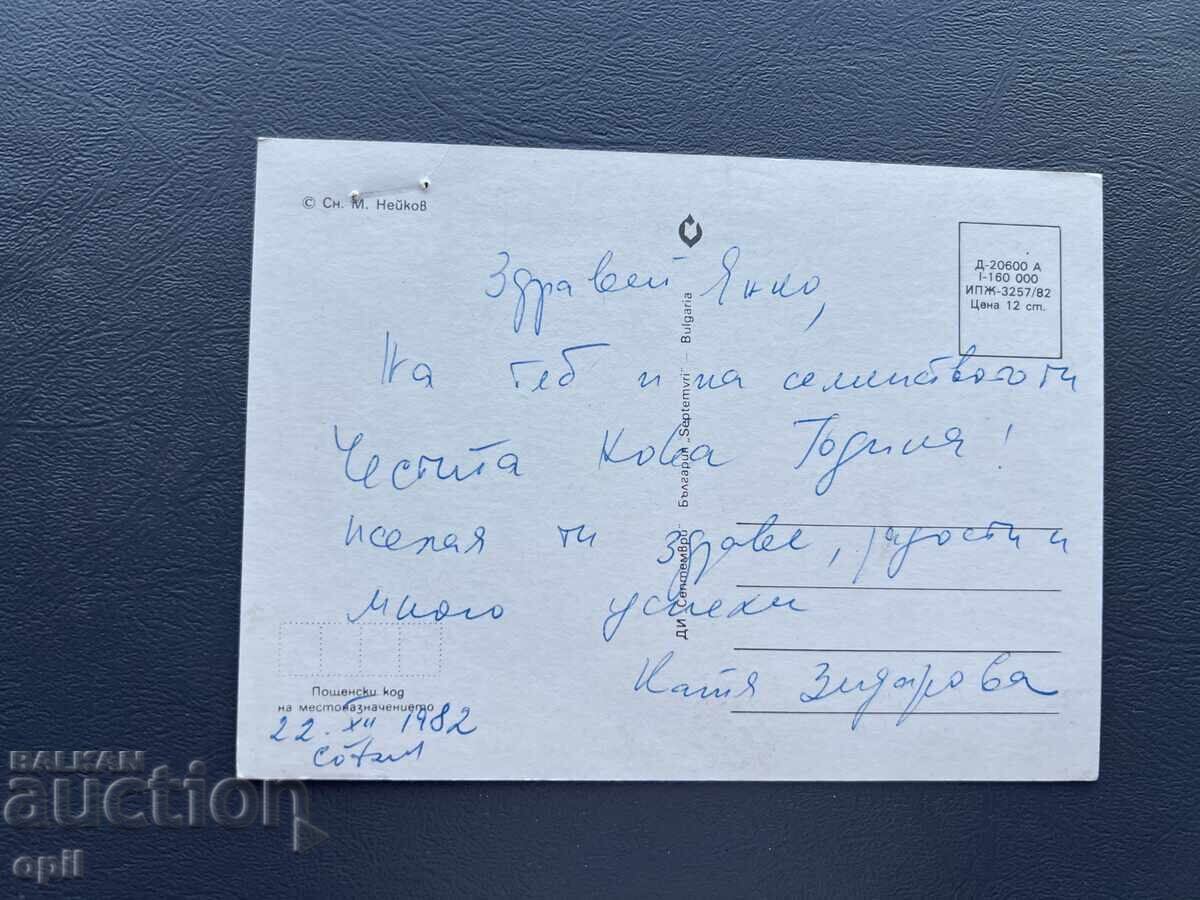 © Сн. М. Нейков
Д-20600 А
I-160 000
ИПЖ-3257/82
Цена 12 ст.
Здравей Янко,
На теб и на семейството ти
Честита Нова Година!
Желая ти здраве, радости и
много успехи
Катя Зидарова
ДИ „Септември" – България „Septemvri" – Bulgaria
Пощенски код
на местоназначението
22. XII 1982
BALKAN
auction
opil